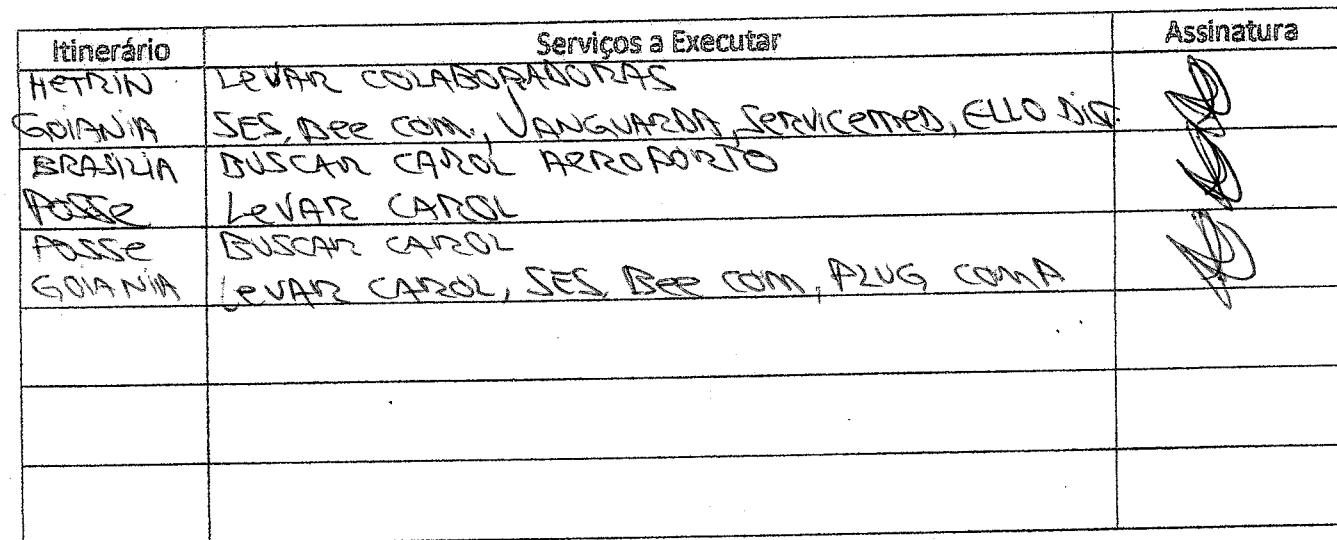 Itinerário Serviços a Executar Assinatura
HETRIN LEVAR COLABORADORAS
GOIANIA SES, Bee COM., VANGUARDA, SERVICEMED, ELLO DIST.
BRASILIA BUSCAR CAROL AEROPORTO
POSSE LEVAR CAROL
POSSE BUSCAR CAROL
GOIANIA LEVAR CAROL, SES, Bee COM, PLUG COMP